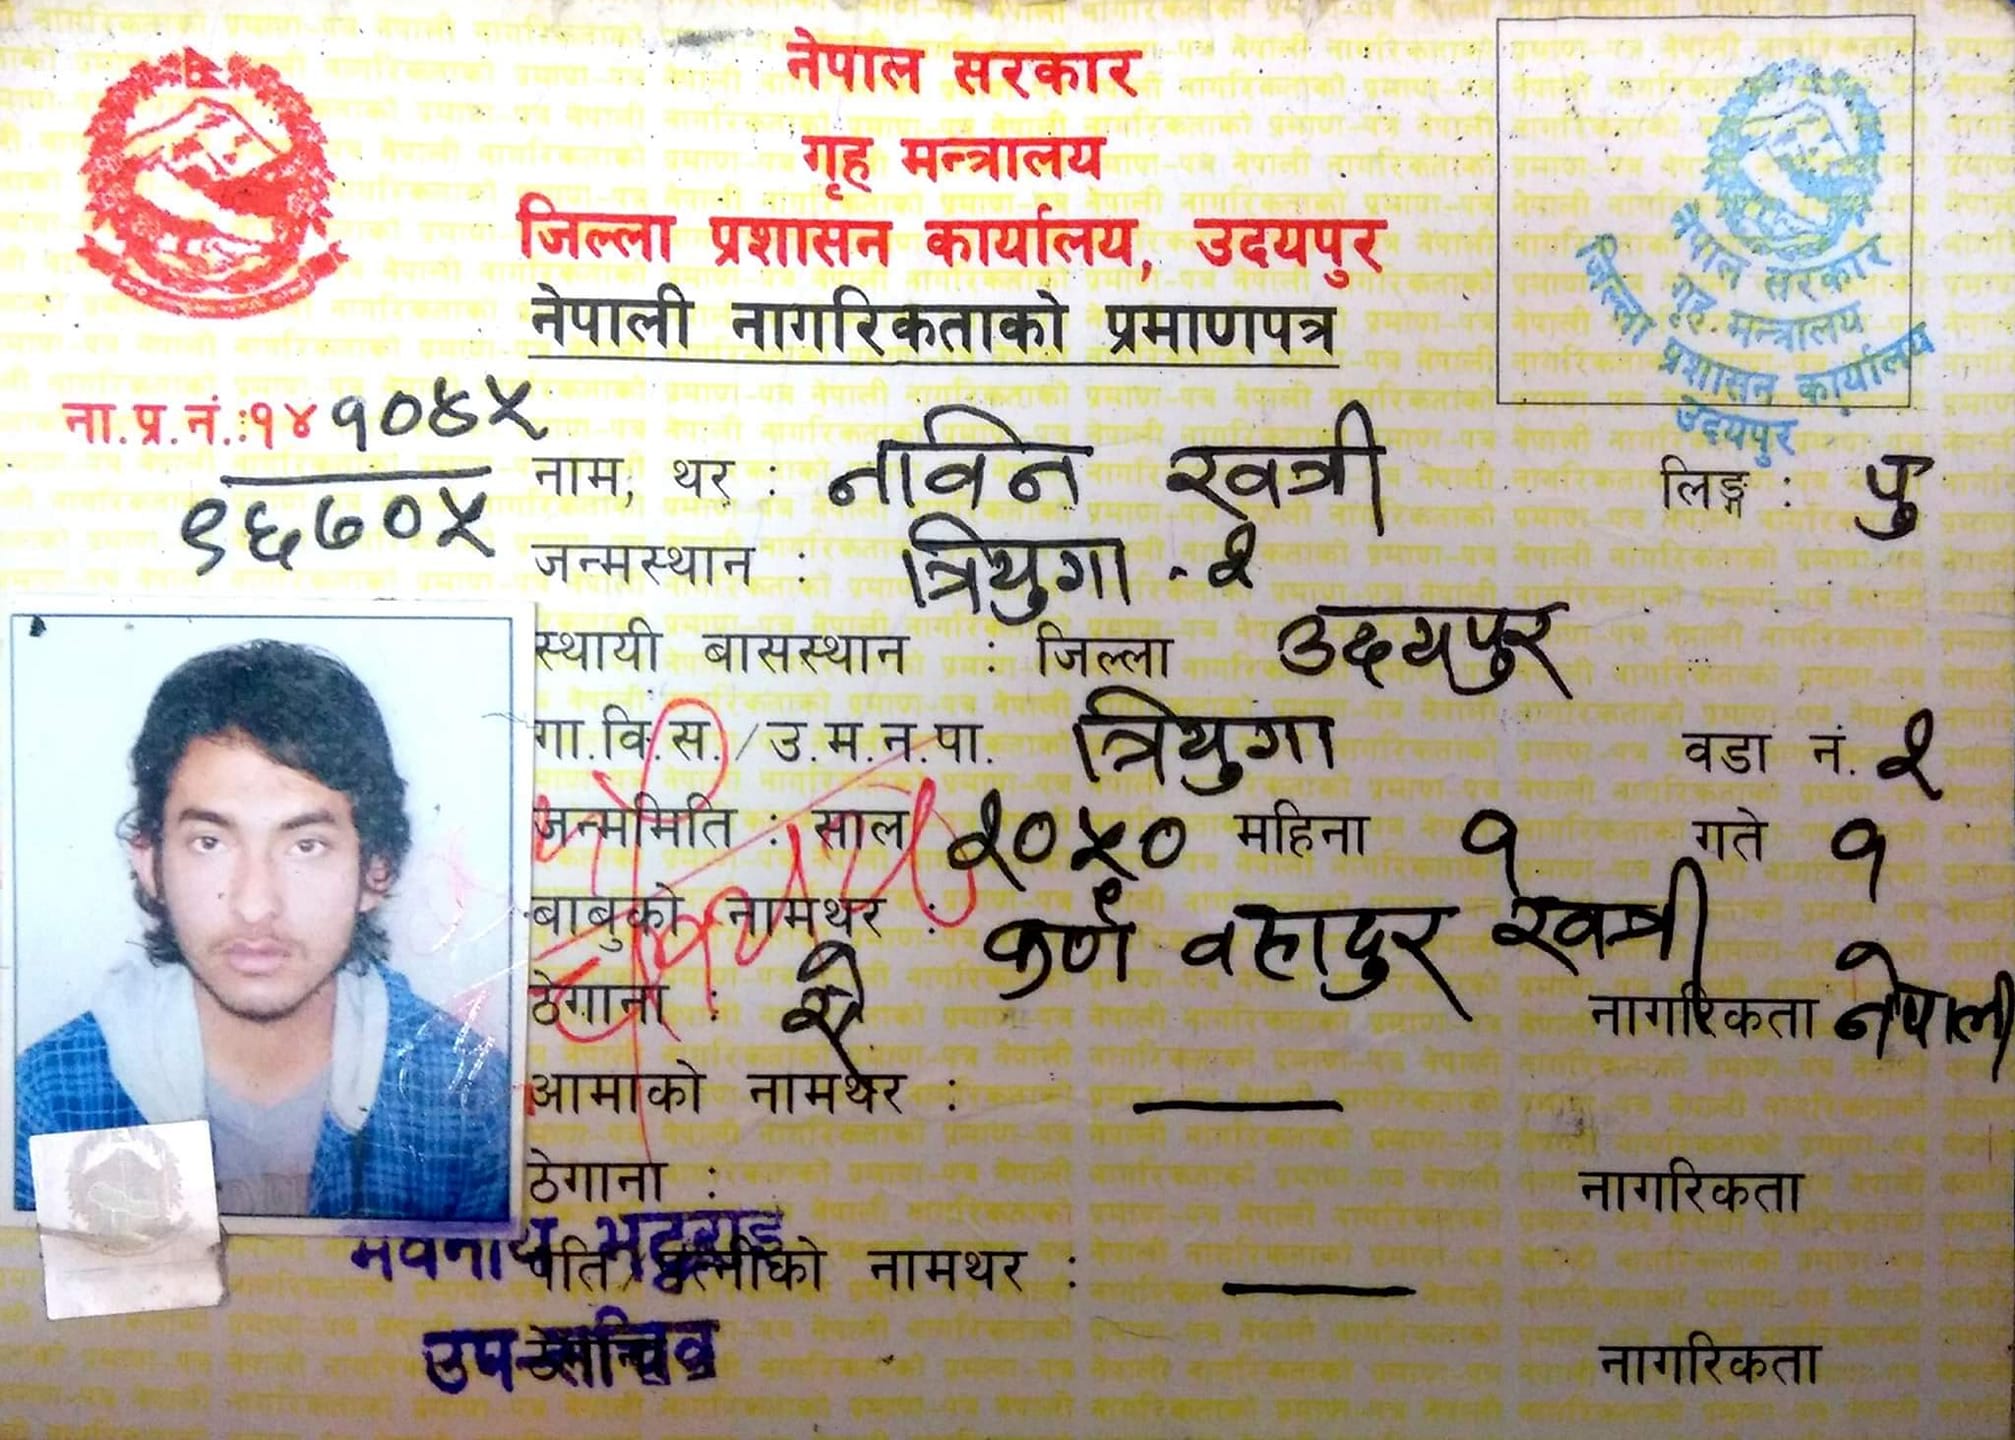 नेपाल सरकार
गृह मन्त्रालय
जिल्ला प्रशासन कार्यालय, उदयपुर
नेपाली नागरिकताको प्रमाणपत्र
नेपाल सरकार
गृह मन्त्रालय
जिल्ला प्रशासन कार्यालय
उदयपुर
ना.प्र.नं.:१४ १०४५
९६७०५
नाम, थर : नविन खत्री लिङ्ग : पु
जन्मस्थान : त्रियुगा - २
स्थायी बासस्थान : जिल्ला उदयपुर
गा.वि.स./उ.म.न.पा. त्रियुगा वडा नं. २
जन्ममिति : साल २०५० महिना १ गते १
बाबुको नामथर : कर्ण वहादुर खत्री
ठेगाना : ऐ नागरिकता नेपाली
आमाको नामथर : —
ठेगाना : नागरिकता
पति/पत्नीको नामथर : —
उप-सचिव
नागरिकता